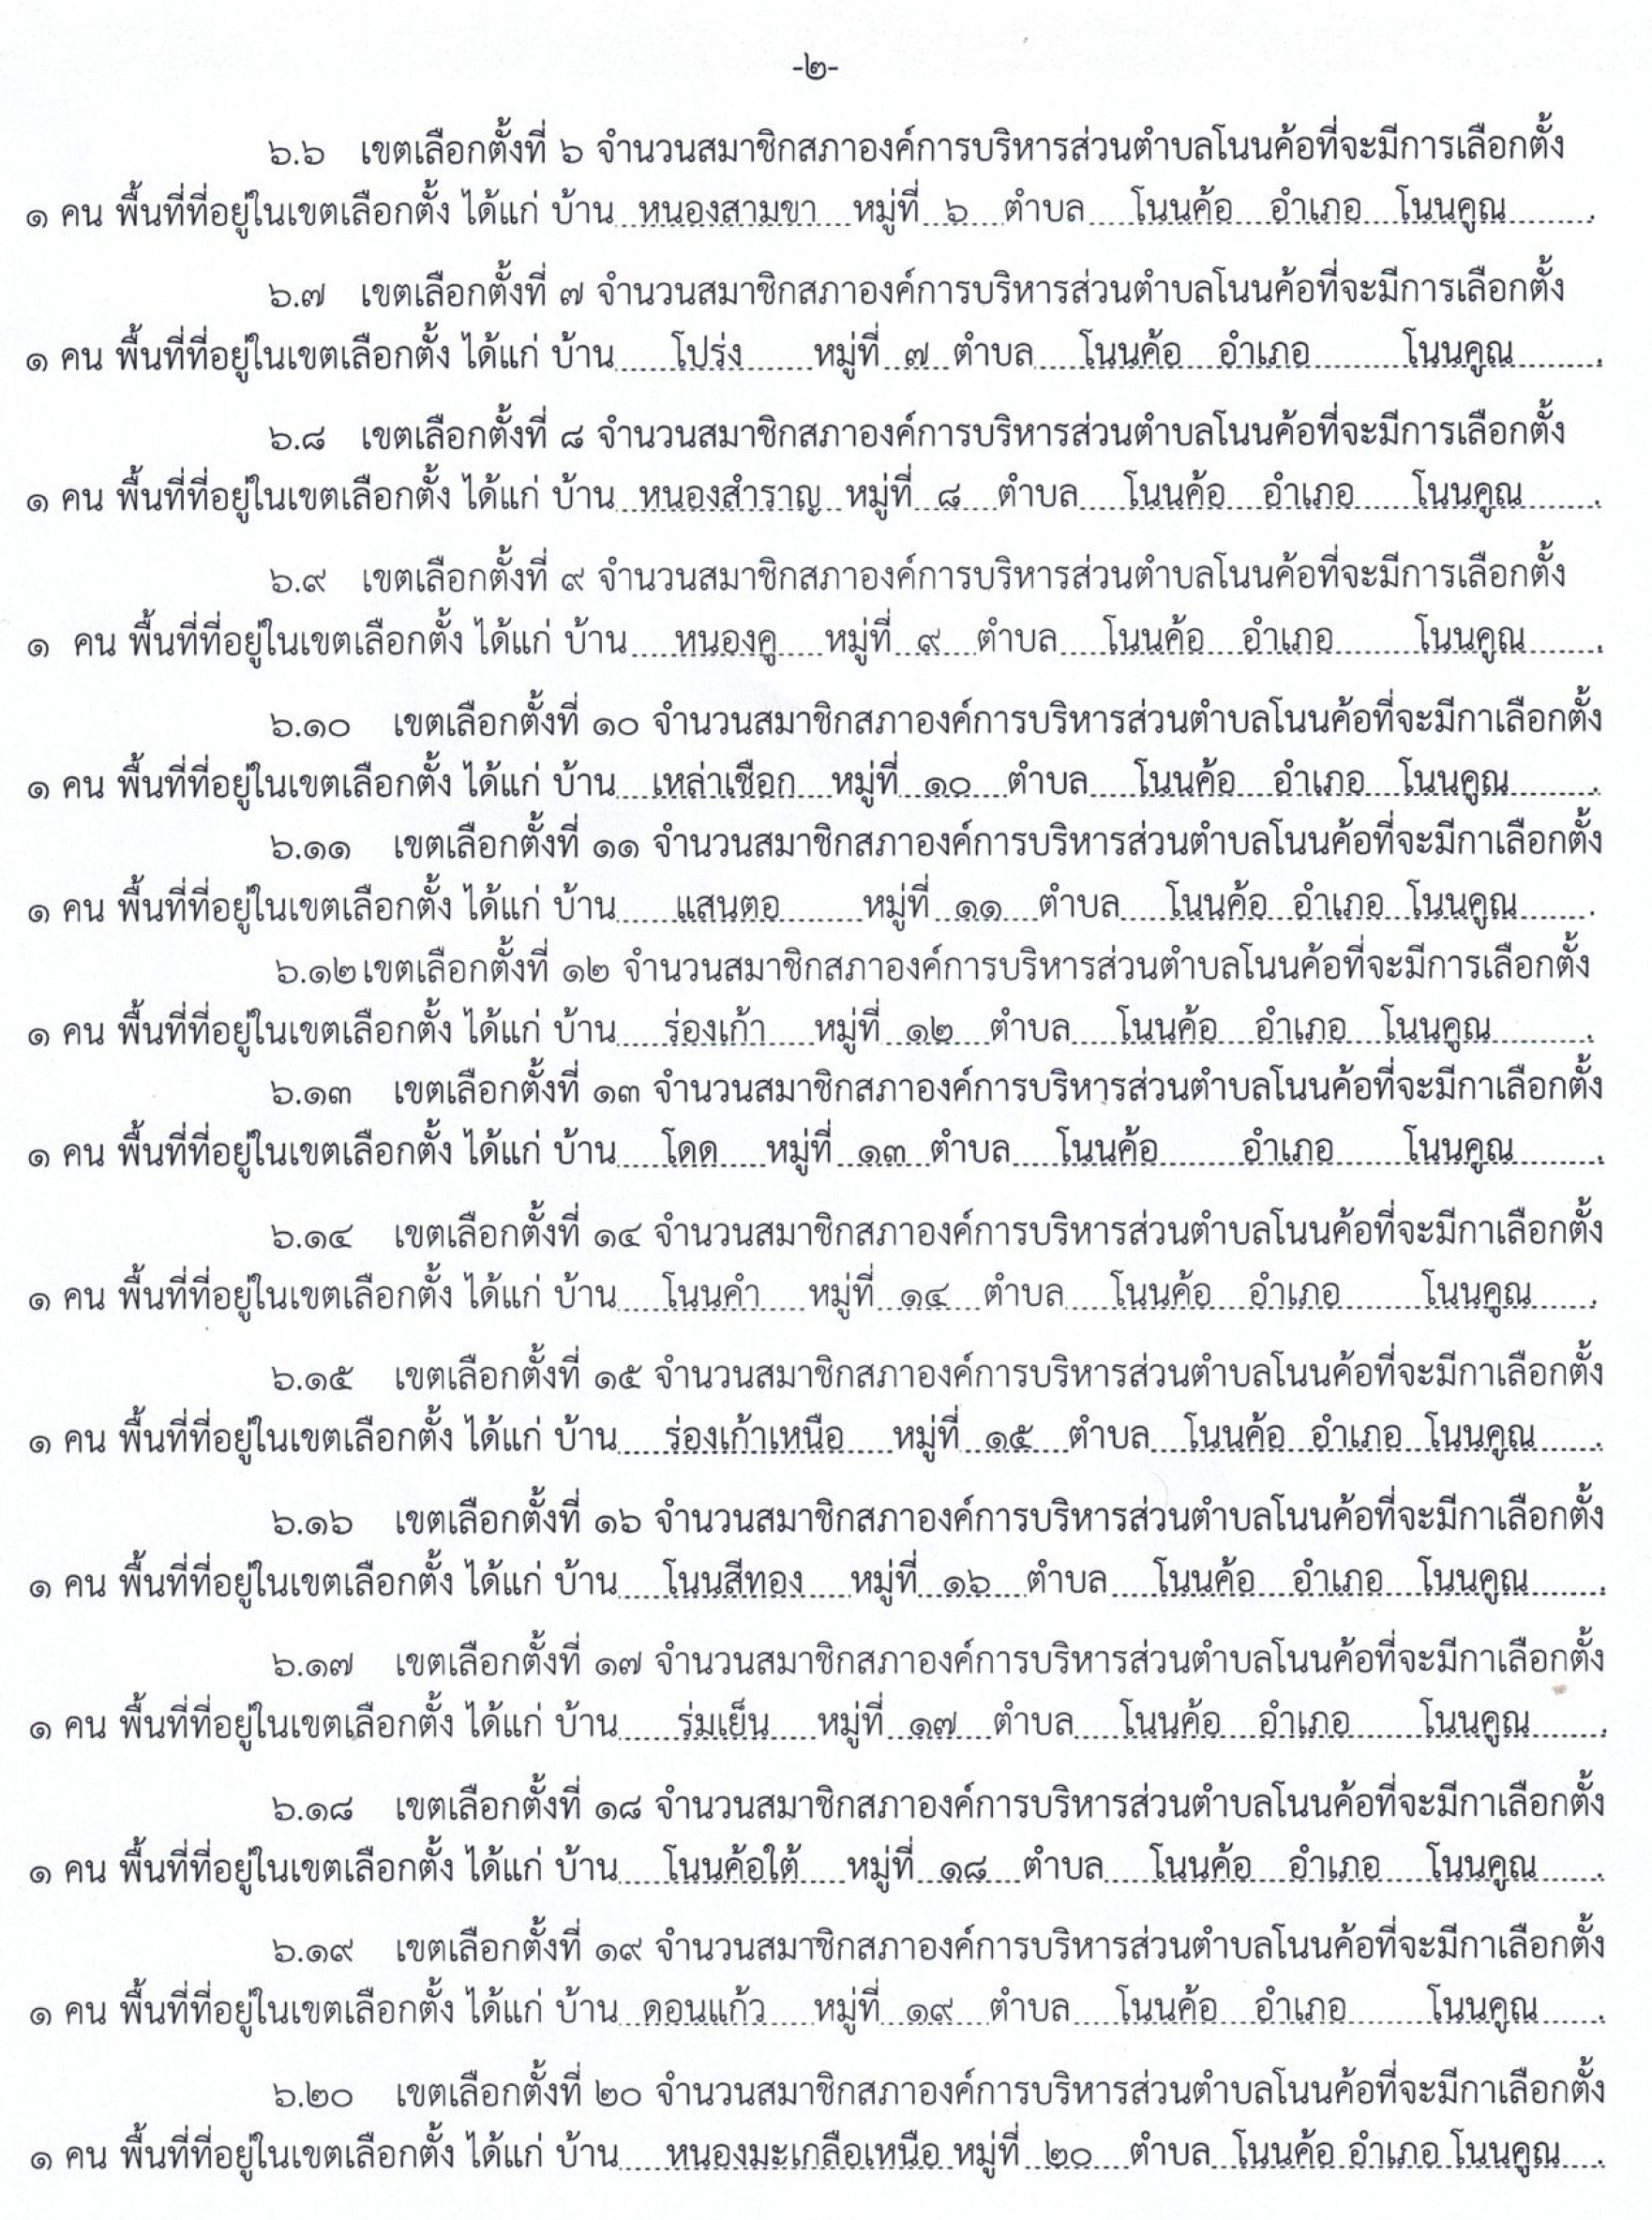 -๒-
๖.๖ เขตเลือกตั้งที่ ๖ จำนวนสมาชิกสภาองค์การบริหารส่วนตำบลโนนค้อที่จะมีการเลือกตั้ง
๑ คน พื้นที่ที่อยู่ในเขตเลือกตั้ง ได้แก่ บ้าน หนองสามขา หมู่ที่ ๖ ตำบล โนนค้อ อำเภอ โนนคูณ .
๖.๗ เขตเลือกตั้งที่ ๗ จำนวนสมาชิกสภาองค์การบริหารส่วนตำบลโนนค้อที่จะมีการเลือกตั้ง
๑ คน พื้นที่ที่อยู่ในเขตเลือกตั้ง ได้แก่ บ้าน โปร่ง หมู่ที่ ๗ ตำบล โนนค้อ อำเภอ โนนคูณ .
๖.๘ เขตเลือกตั้งที่ ๘ จำนวนสมาชิกสภาองค์การบริหารส่วนตำบลโนนค้อที่จะมีการเลือกตั้ง
๑ คน พื้นที่ที่อยู่ในเขตเลือกตั้ง ได้แก่ บ้าน หนองสำราญ หมู่ที่ ๘ ตำบล โนนค้อ อำเภอ โนนคูณ .
๖.๙ เขตเลือกตั้งที่ ๙ จำนวนสมาชิกสภาองค์การบริหารส่วนตำบลโนนค้อที่จะมีการเลือกตั้ง
๑ คน พื้นที่ที่อยู่ในเขตเลือกตั้ง ได้แก่ บ้าน หนองคู หมู่ที่ ๙ ตำบล โนนค้อ อำเภอ โนนคูณ .
๖.๑๐ เขตเลือกตั้งที่ ๑๐ จำนวนสมาชิกสภาองค์การบริหารส่วนตำบลโนนค้อที่จะมีกาเลือกตั้ง
๑ คน พื้นที่ที่อยู่ในเขตเลือกตั้ง ได้แก่ บ้าน เหล่าเชือก หมู่ที่ ๑๐ ตำบล โนนค้อ อำเภอ โนนคูณ .
๖.๑๑ เขตเลือกตั้งที่ ๑๑ จำนวนสมาชิกสภาองค์การบริหารส่วนตำบลโนนค้อที่จะมีกาเลือกตั้ง
๑ คน พื้นที่ที่อยู่ในเขตเลือกตั้ง ได้แก่ บ้าน แสนตอ หมู่ที่ ๑๑ ตำบล โนนค้อ อำเภอ โนนคูณ .
๖.๑๒ เขตเลือกตั้งที่ ๑๒ จำนวนสมาชิกสภาองค์การบริหารส่วนตำบลโนนค้อที่จะมีการเลือกตั้ง
๑ คน พื้นที่ที่อยู่ในเขตเลือกตั้ง ได้แก่ บ้าน ร่องเก้า หมู่ที่ ๑๒ ตำบล โนนค้อ อำเภอ โนนคูณ .
๖.๑๓ เขตเลือกตั้งที่ ๑๓ จำนวนสมาชิกสภาองค์การบริหารส่วนตำบลโนนค้อที่จะมีกาเลือกตั้ง
๑ คน พื้นที่ที่อยู่ในเขตเลือกตั้ง ได้แก่ บ้าน โดด หมู่ที่ ๑๓ ตำบล โนนค้อ อำเภอ โนนคูณ .
๖.๑๔ เขตเลือกตั้งที่ ๑๔ จำนวนสมาชิกสภาองค์การบริหารส่วนตำบลโนนค้อที่จะมีกาเลือกตั้ง
๑ คน พื้นที่ที่อยู่ในเขตเลือกตั้ง ได้แก่ บ้าน โนนคำ หมู่ที่ ๑๔ ตำบล โนนค้อ อำเภอ โนนคูณ .
๖.๑๕ เขตเลือกตั้งที่ ๑๕ จำนวนสมาชิกสภาองค์การบริหารส่วนตำบลโนนค้อที่จะมีกาเลือกตั้ง
๑ คน พื้นที่ที่อยู่ในเขตเลือกตั้ง ได้แก่ บ้าน ร่องเก้าเหนือ หมู่ที่ ๑๕ ตำบล โนนค้อ อำเภอ โนนคูณ .
๖.๑๖ เขตเลือกตั้งที่ ๑๖ จำนวนสมาชิกสภาองค์การบริหารส่วนตำบลโนนค้อที่จะมีกาเลือกตั้ง
๑ คน พื้นที่ที่อยู่ในเขตเลือกตั้ง ได้แก่ บ้าน โนนสีทอง หมู่ที่ ๑๖ ตำบล โนนค้อ อำเภอ โนนคูณ .
๖.๑๗ เขตเลือกตั้งที่ ๑๗ จำนวนสมาชิกสภาองค์การบริหารส่วนตำบลโนนค้อที่จะมีกาเลือกตั้ง
๑ คน พื้นที่ที่อยู่ในเขตเลือกตั้ง ได้แก่ บ้าน ร่มเย็น หมู่ที่ ๑๗ ตำบล โนนค้อ อำเภอ โนนคูณ .
๖.๑๘ เขตเลือกตั้งที่ ๑๘ จำนวนสมาชิกสภาองค์การบริหารส่วนตำบลโนนค้อที่จะมีกาเลือกตั้ง
๑ คน พื้นที่ที่อยู่ในเขตเลือกตั้ง ได้แก่ บ้าน โนนค้อใต้ หมู่ที่ ๑๘ ตำบล โนนค้อ อำเภอ โนนคูณ .
๖.๑๙ เขตเลือกตั้งที่ ๑๙ จำนวนสมาชิกสภาองค์การบริหารส่วนตำบลโนนค้อที่จะมีกาเลือกตั้ง
๑ คน พื้นที่ที่อยู่ในเขตเลือกตั้ง ได้แก่ บ้าน ดอนแก้ว หมู่ที่ ๑๙ ตำบล โนนค้อ อำเภอ โนนคูณ .
๖.๒๐ เขตเลือกตั้งที่ ๒๐ จำนวนสมาชิกสภาองค์การบริหารส่วนตำบลโนนค้อที่จะมีกาเลือกตั้ง
๑ คน พื้นที่ที่อยู่ในเขตเลือกตั้ง ได้แก่ บ้าน หนองมะเกลือเหนือ หมู่ที่ ๒๐ ตำบล โนนค้อ อำเภอ โนนคูณ .